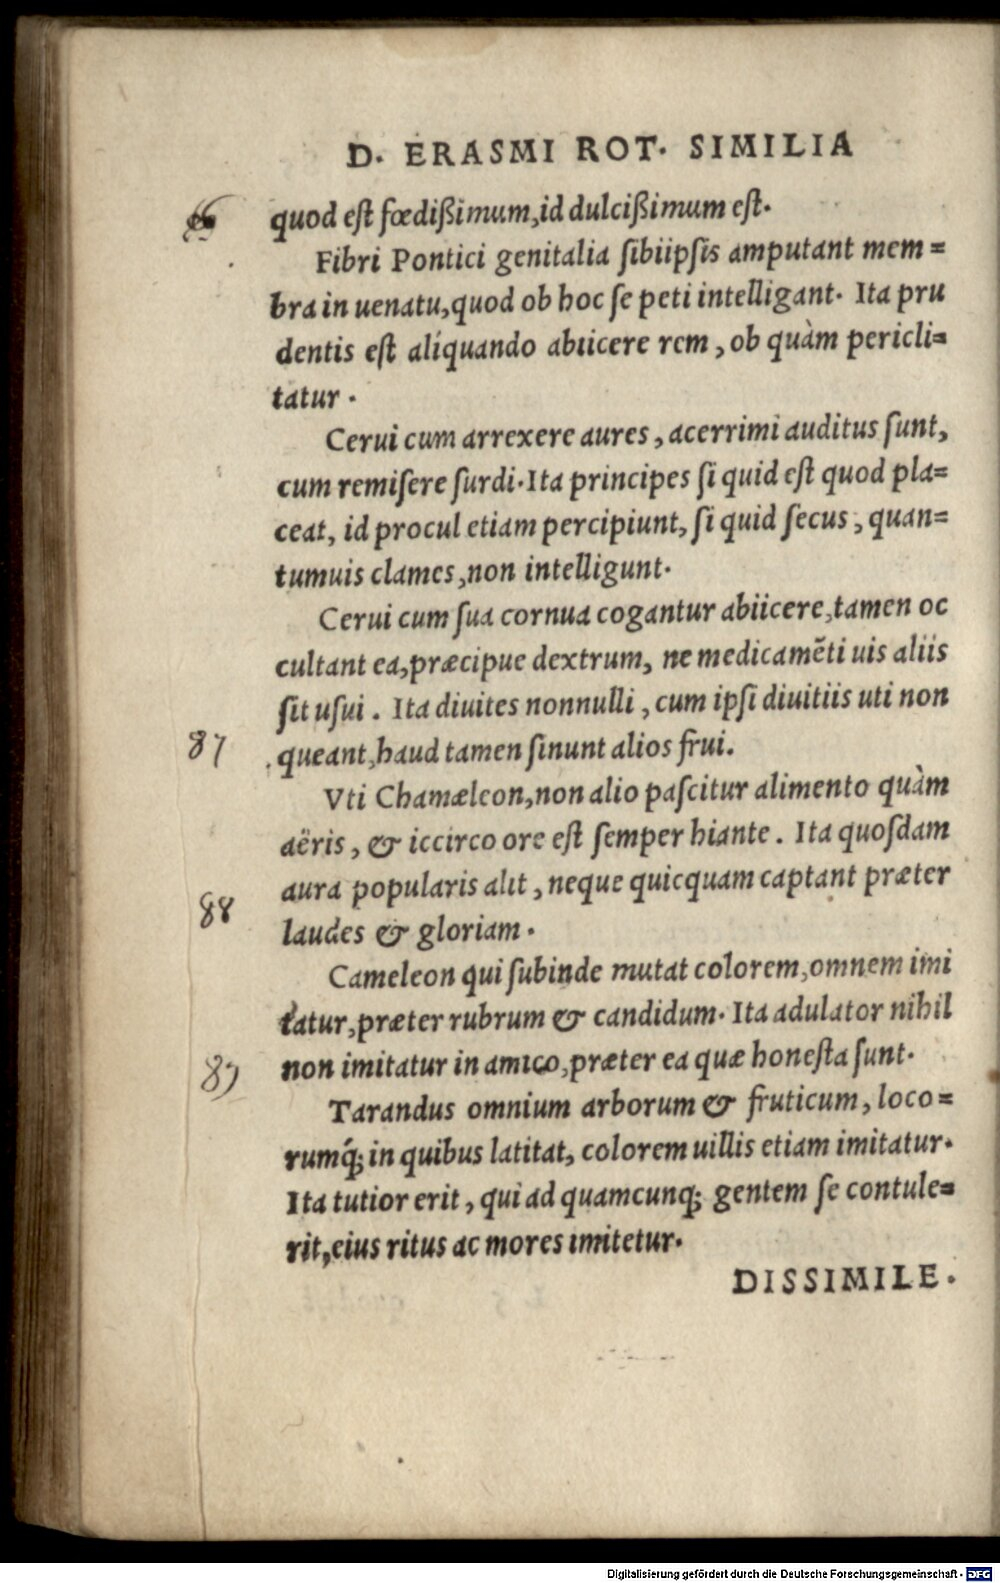 D. ERASMI ROT. SIMILIA
quod est fœdißimum, id dulcißimum est.
Fibri Pontici genitalia sibiipsis amputant mem=
bra in uenatu, quod ob hoc se peti intelligant. Ita pru
dentis est aliquando abiicere rem, ob quàm pericli=
tatur.
Cerui cum arrexere aures, acerrimi auditus sunt,
cum remisere surdi. Ita principes si quid est quod pla=
ceat, id procul etiam percipiunt, si quid secus, quan=
tumuis clames, non intelligunt.
Cerui cum sua cornua cogantur abiicere, tamen oc
cultant ea, præcipue dextrum, ne medicamẽti uis aliis
sit usui. Ita diuites nonnulli, cum ipsi diuitiis uti non
87 queant, haud tamen sinunt alios frui.
Vti Chamæleon, non alio pascitur alimento quàm
aëris, & iccirco ore est semper hiante. Ita quosdam
aura popularis alit, neque quicquam captant præter
88 laudes & gloriam.
Cameleon qui subinde mutat colorem, omnem imi
tatur, præter rubrum & candidum. Ita adulator nihil
89 non imitatur in amico, præter ea quæ honesta sunt.
Tarandus omnium arborum & fruticum, loco=
rumq́; in quibus latitat, colorem uillis etiam imitatur.
Ita tutior erit, qui ad quamcunq; gentem se contule=
rit, eius ritus ac mores imitetur.
DISSIMILE.
Digitalisierung gefördert durch die Deutsche Forschungsgemeinschaft - DFG